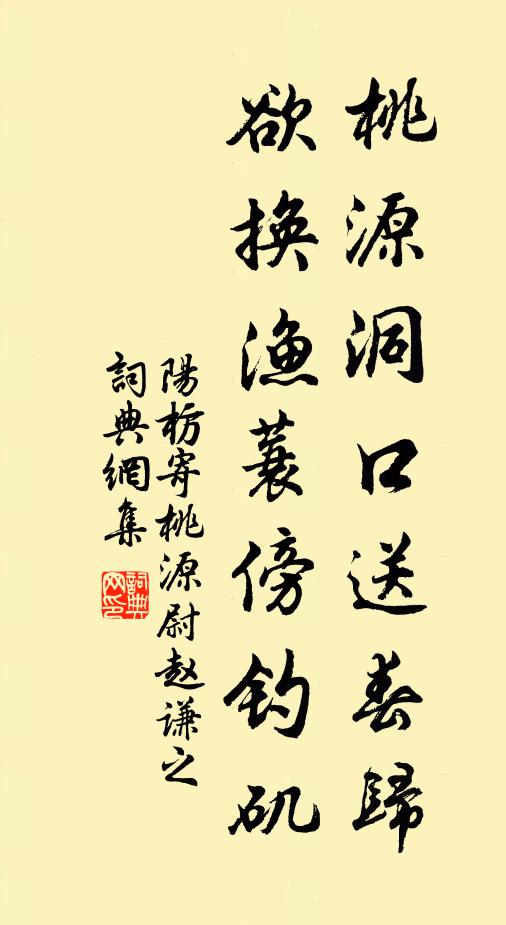 桃源洞口送春歸
欲換漁蓑傍钓矶
陽枋寄桃源尉赵谦之
詞典網集
詞典网印